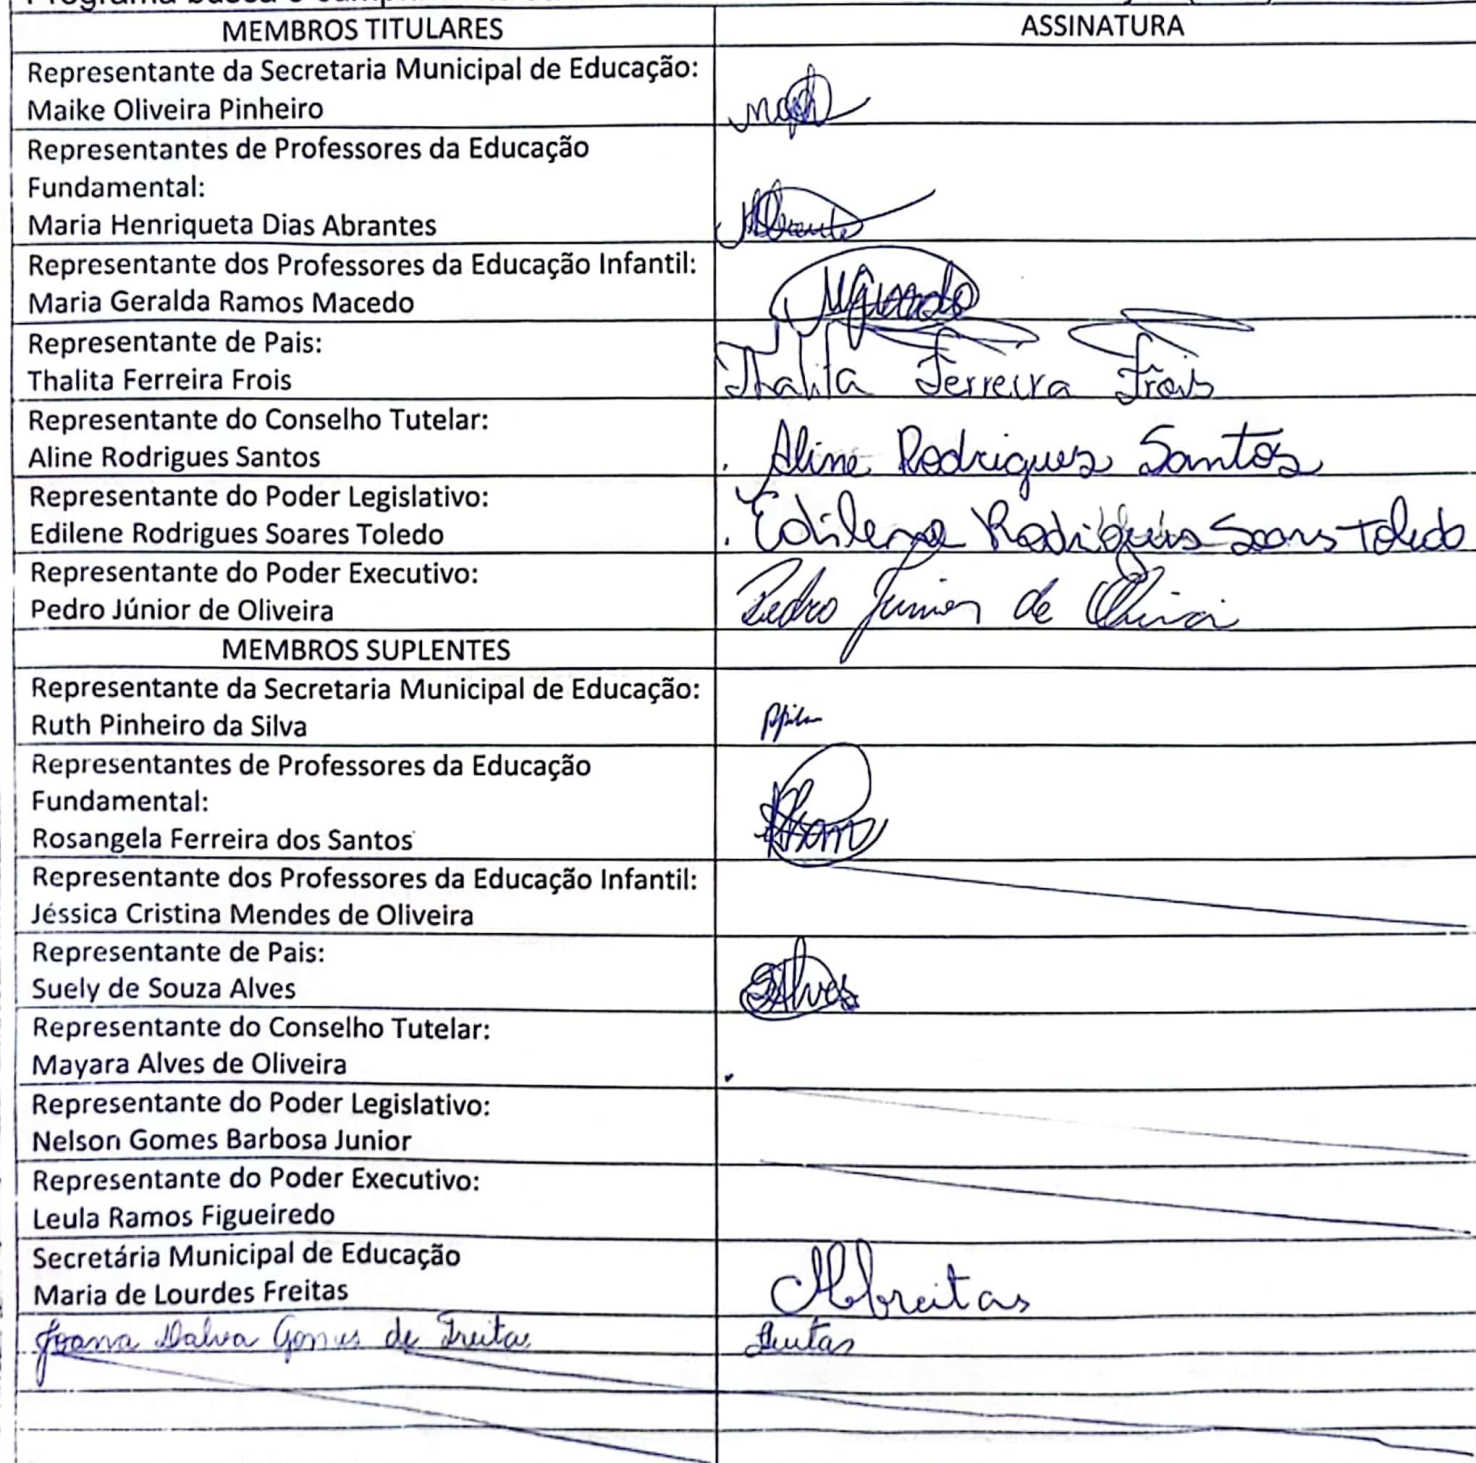 MEMBROS TITULARES ASSINATURA
Representante da Secretaria Municipal de Educação:
Maike Oliveira Pinheiro
Representantes de Professores da Educação
Fundamental:
Maria Henriqueta Dias Abrantes
Representante dos Professores da Educação Infantil:
Maria Geralda Ramos Macedo
Representante de Pais:
Thalita Ferreira Frois Thalita Ferreira Frois
Representante do Conselho Tutelar:
Aline Rodrigues Santos Aline Rodrigues Santos
Representante do Poder Legislativo:
Edilene Rodrigues Soares Toledo Edilene Rodrigues Soares Toledo
Representante do Poder Executivo:
Pedro Júnior de Oliveira Pedro Júnior de Oliveira
MEMBROS SUPLENTES
Representante da Secretaria Municipal de Educação:
Ruth Pinheiro da Silva
Representantes de Professores da Educação
Fundamental:
Rosangela Ferreira dos Santos
Representante dos Professores da Educação Infantil:
Jéssica Cristina Mendes de Oliveira
Representante de Pais:
Suely de Souza Alves SAlves
Representante do Conselho Tutelar:
Mayara Alves de Oliveira
Representante do Poder Legislativo:
Nelson Gomes Barbosa Junior
Representante do Poder Executivo:
Leula Ramos Figueiredo
Secretária Municipal de Educação
Maria de Lourdes Freitas
Joana Dalva Gomes de Freitas Freitas